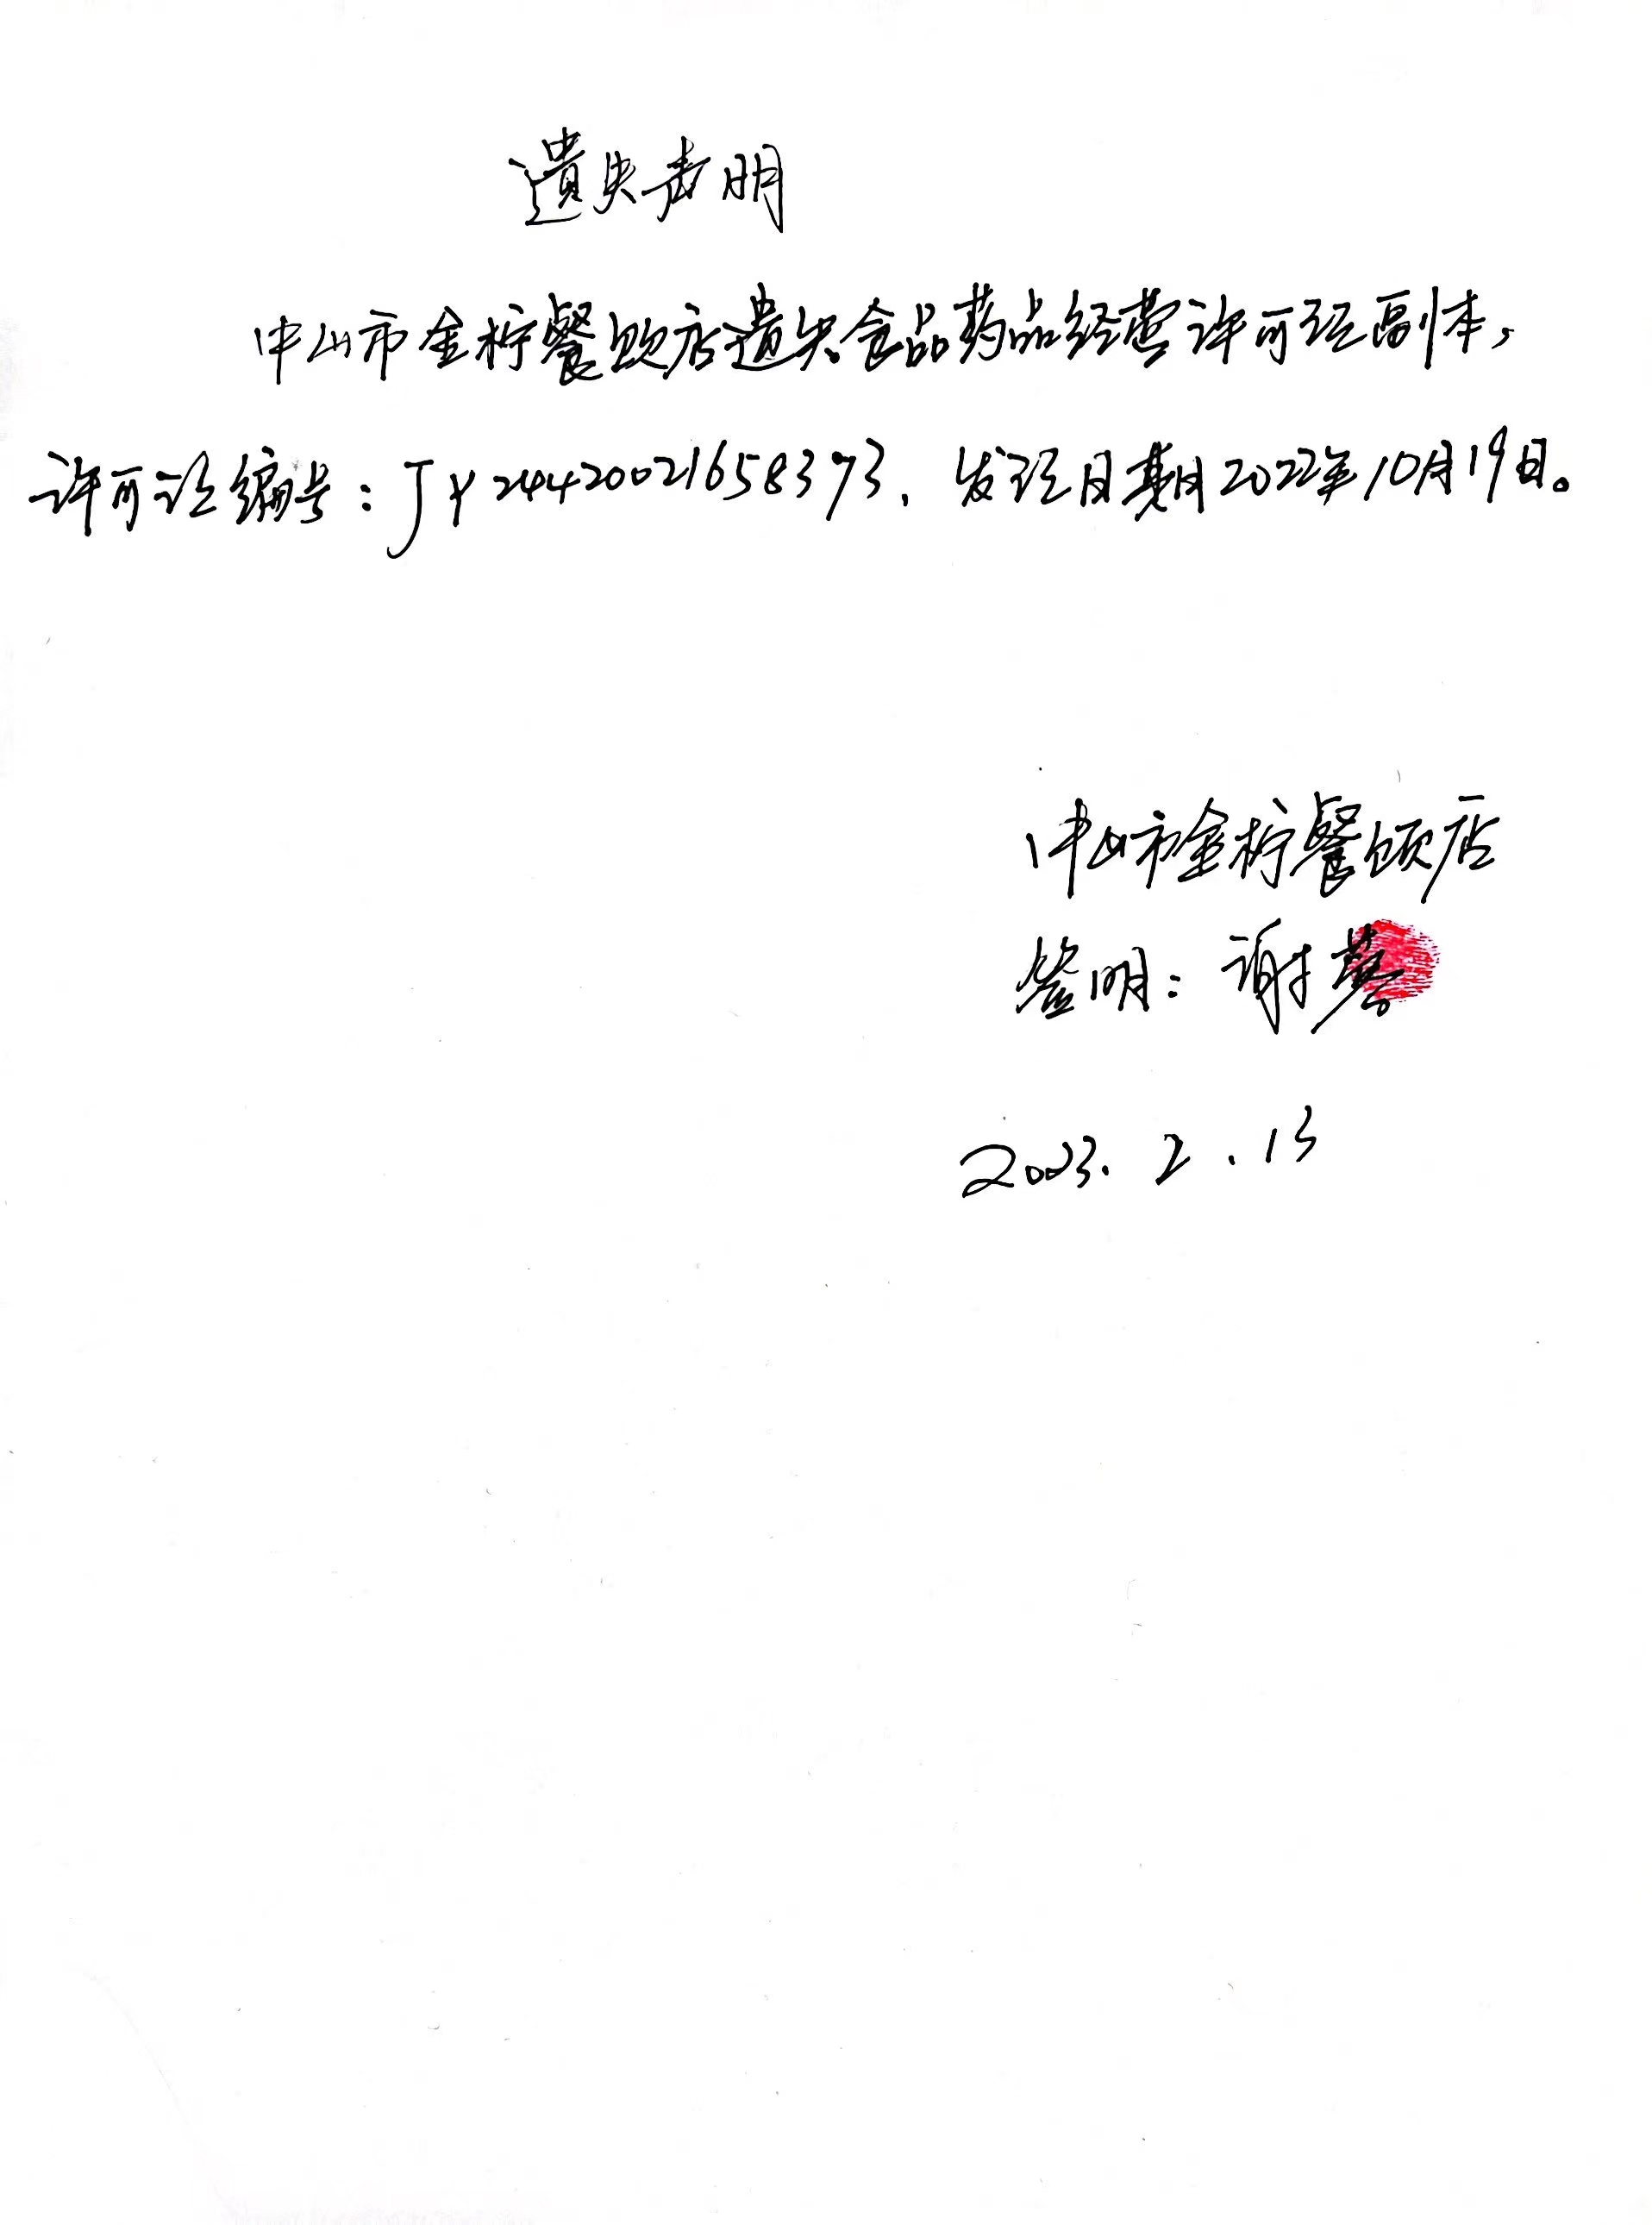 遗失声明
中山市金柠餐饮店遗失食品药品经营许可证副本，
许可证编号：JY24420021658373，发证日期2022年10月19日。
中山市金柠餐饮店
签明：谢
2023.2.13